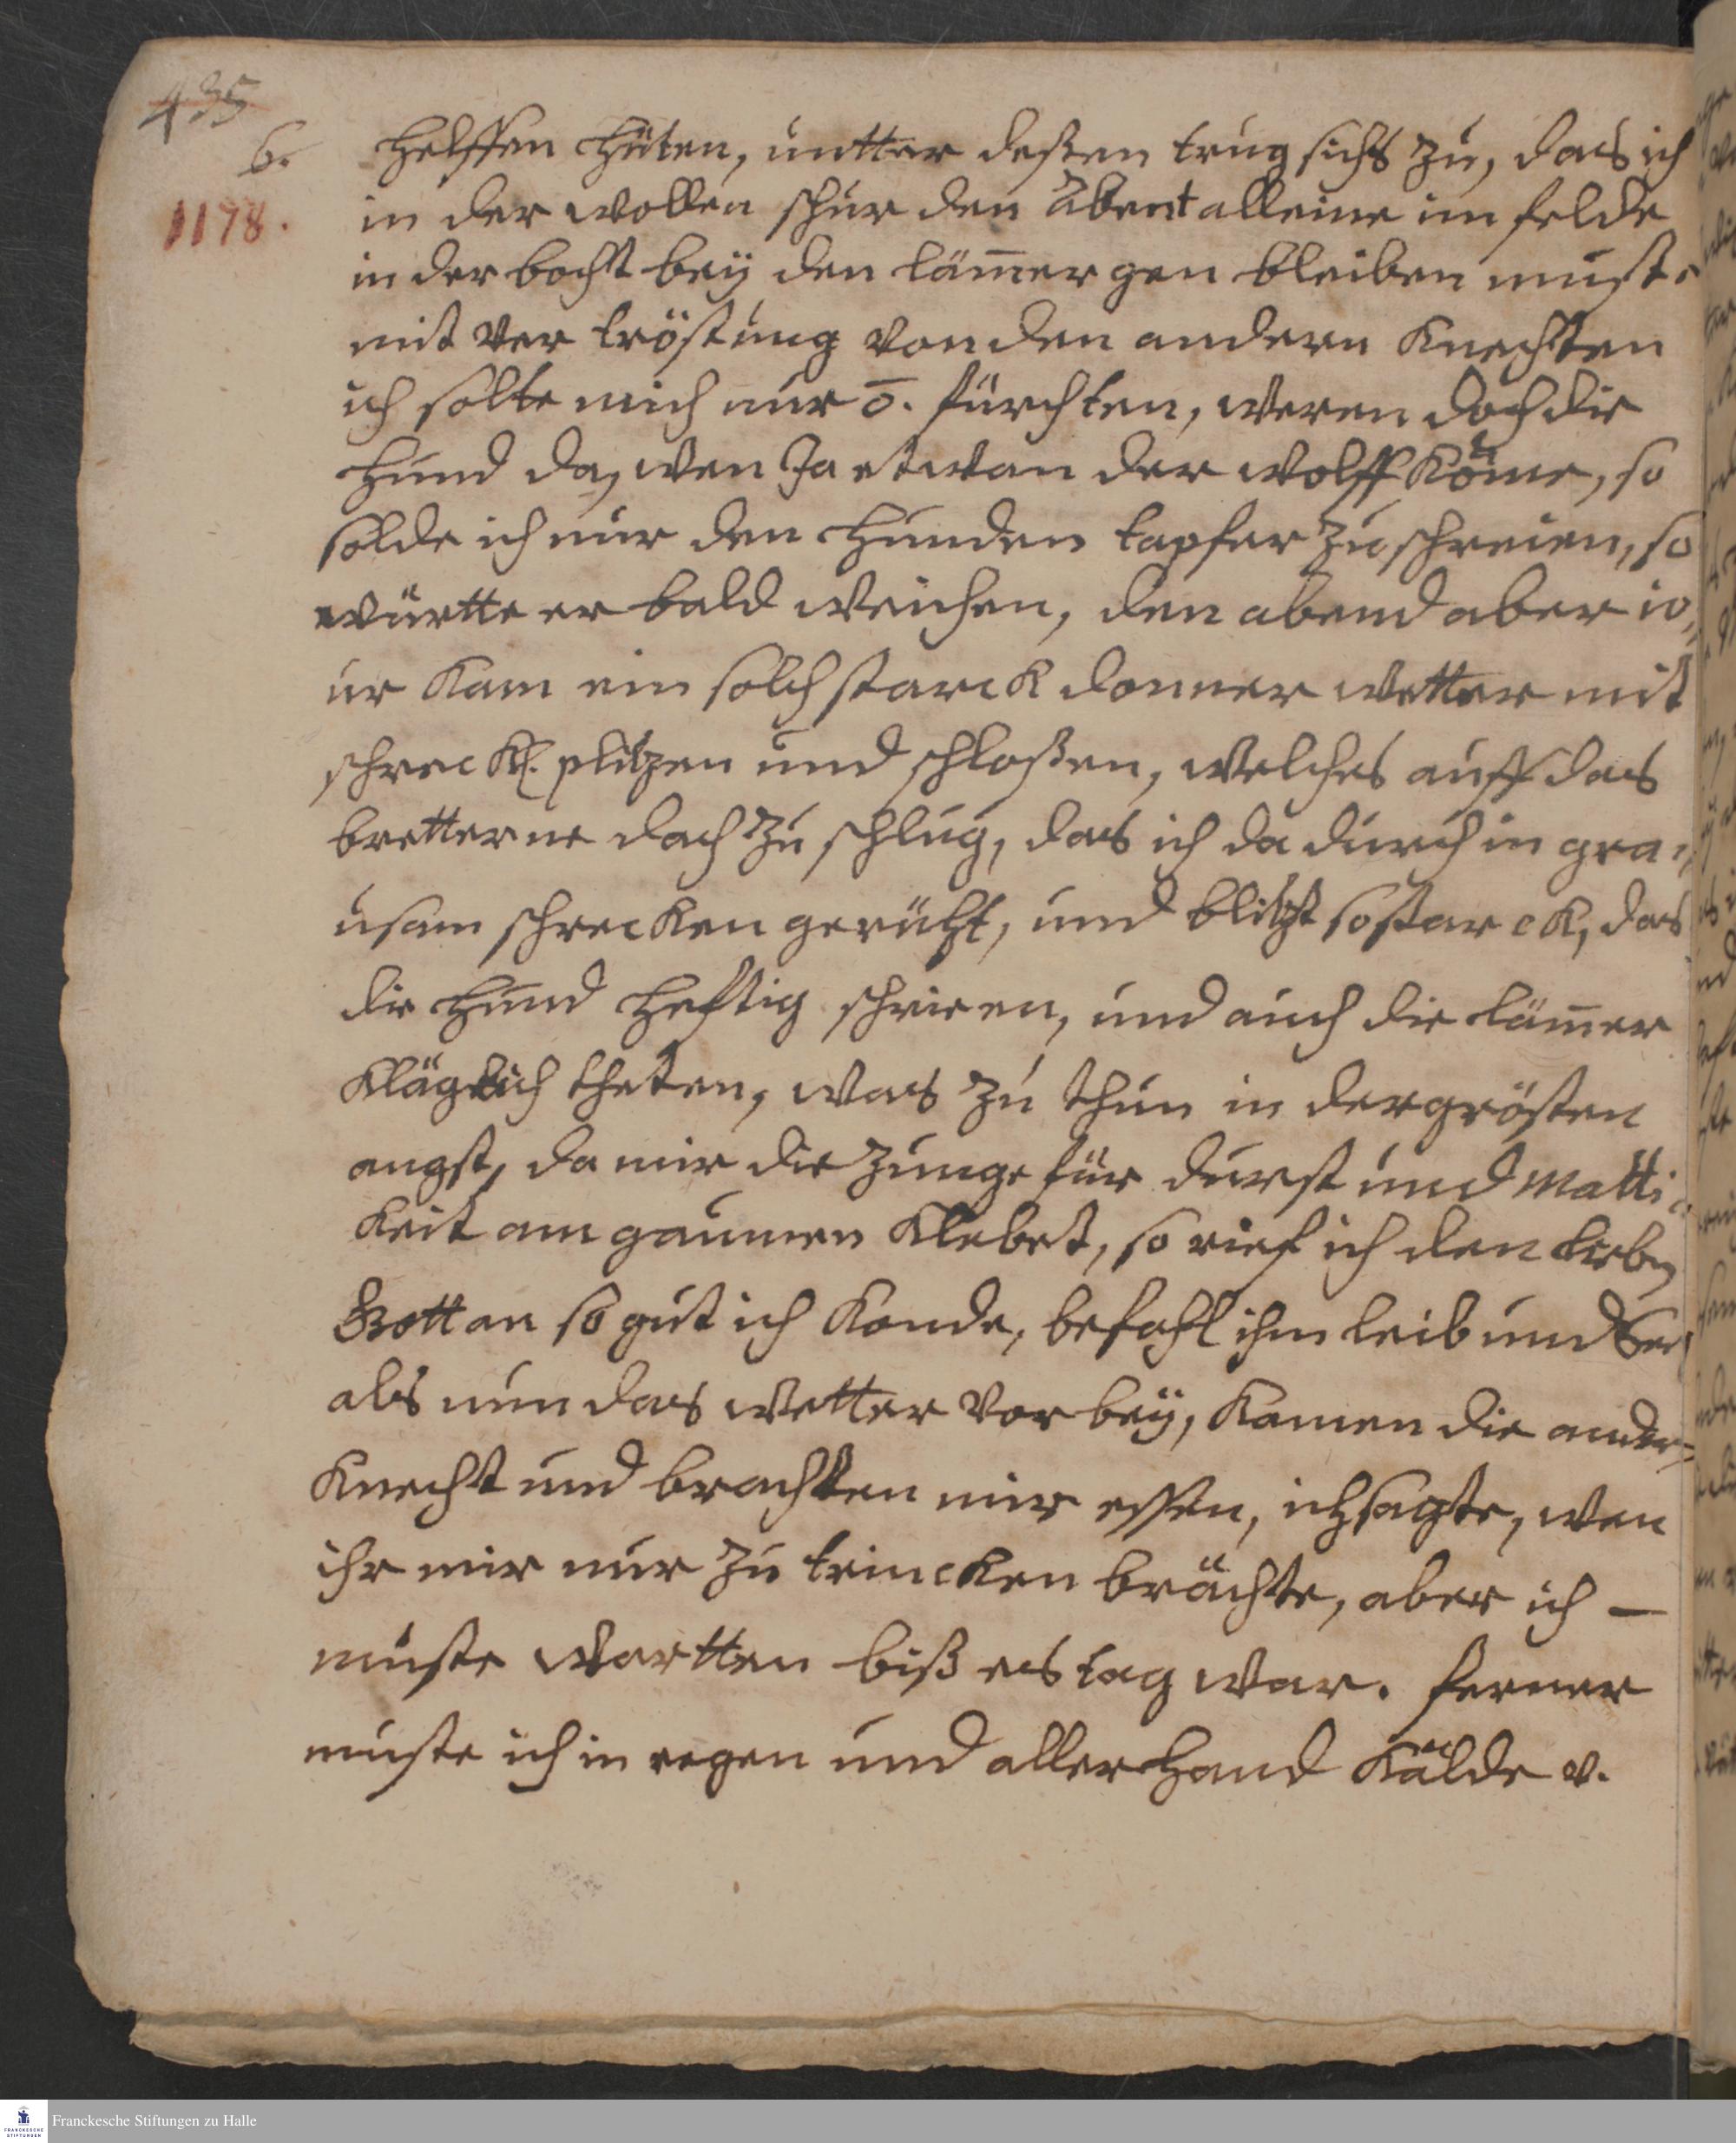 435
6.
1178.
helffen hüten, untter deßen trug sichs zu, das ich
in der wollen schur den Abent alleine im felde
in der bocht bey den lām̄ergen bleiben muste
mit ver tröstung von den andern Knechten
ich solte mich nur ō. fürchten, weren doch die
Hund da, wen Ja etwan der wolff Köme, so
solde ich nur den Hunden tapfer zu schreien, so
württe er bald weichen, den abend aber 10,,
ur Kam ein solch starck donner wetter mit
schreckl. plitzen und schloßen, welches auff das
bretterne dach zu schlug, das ich da durch in gra,,
usam schrecken gerüht, und blitzt so starck, das
die Hund hefftig schrieen, und auch die läm̄er
Kläglich theten, was zu thun in der grösten
angst, da mir die Zunge für durst und Matti,,
Keit am gaumen Klebet, so rief ich den lieben
Gott an so gut ich Konde, befahl ihm leib und Seel
als nun das wetter vor bey, Kamen die ander=
Knecht und brachten mir essen, ich sagte, wen
ihr mir nur zu trincken brächte, aber ich —
muste wartten biß es tag war. ferner
muste ich in regen und aller hand Kälde v.
Franckesche Stiftungen zu Halle
FRANCKESCHE
STIFTUNGEN